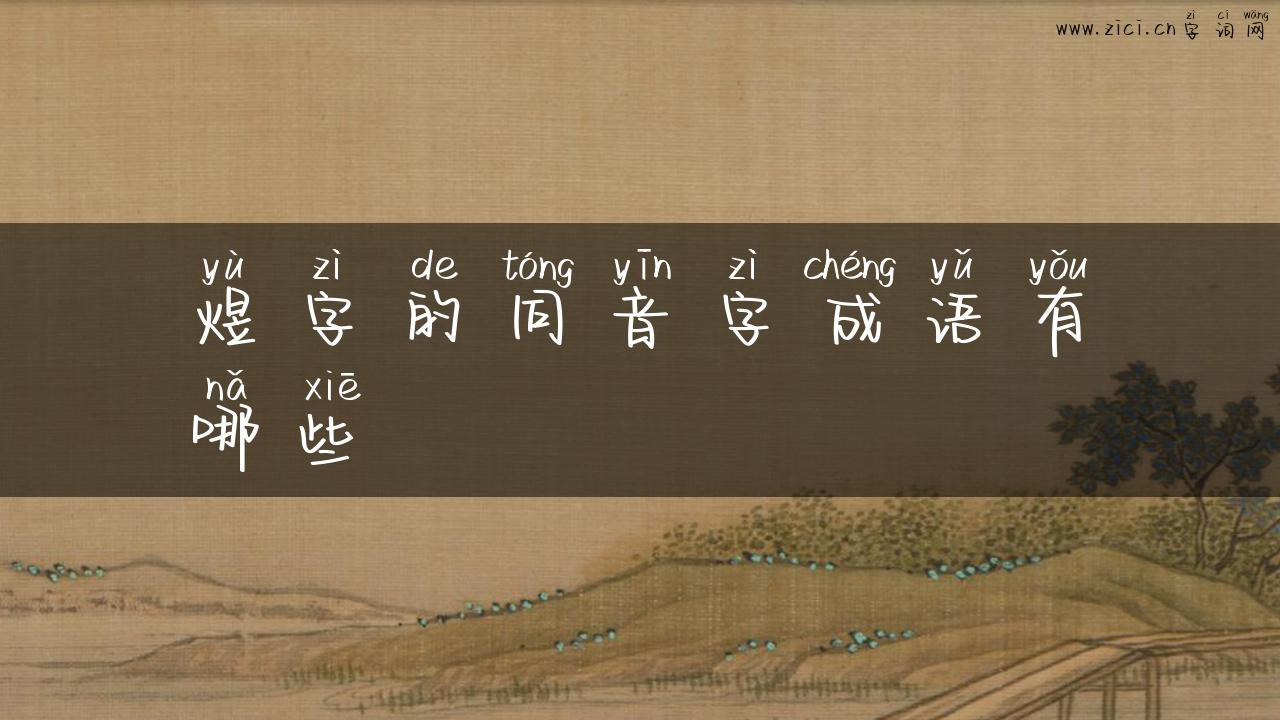 zì cí wǎng
www.zici.cn字词网
yù zì de tóng yīn zì chéng yǔ yǒu
煜字的同音字成语有
nǎ xiē
哪些